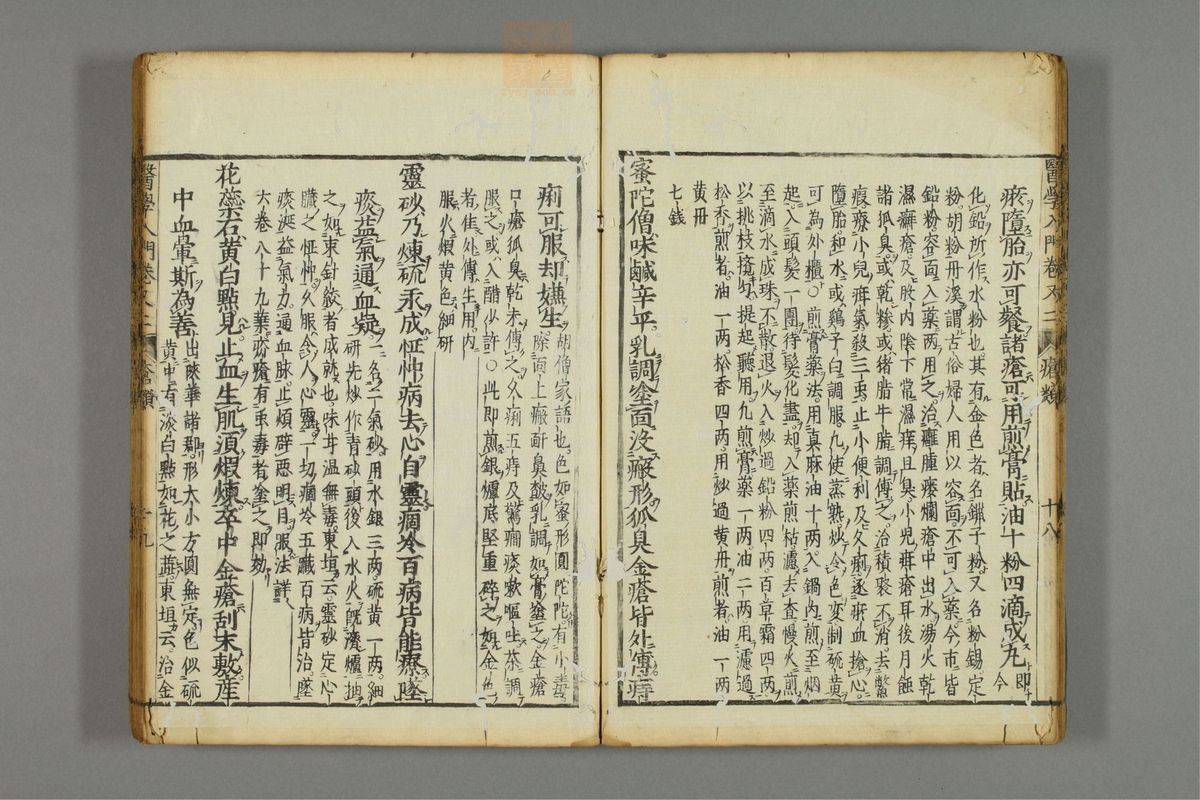 瘀墮胎亦可餐諸瘡可用煎膏貼油十粉四滴成丸即今
化鉛所作水粉也其有金色者名鉛子粉又名粉錫定
粉胡粉丹溪謂古俗婦人用以容面不可入藥今市皆
鉛粉容面入藥兩用之治癰腫瘻爛瘡中出水湯火乾
濕癬瘡及股內陰下常濕痒且臭小兒疳瘡耳後月蝕
諸狐臭或乾糝或猪脂牛脂調傅之治積聚不消去鱉
瘕療小兒疳氣殺三虫止小便利及久痢逐瘀血搶心
墮胎和水或鷄子白調服凡使蒸熟炒令色變制硫黃
可為外櫃○煎膏藥法用真麻油十兩入鍋內煎至烟
起入頭髮一團待髮化盡却入藥煎枯濾去查慢火煎
至滴水成珠不散退火入炒過鉛粉四兩百草霜四兩
以桃枝攪勻提起聽用凡煎膏藥一兩油二兩用濾過
松香煎者油一兩松香四兩用炒過黃丹煎者油一兩
黃丹
七錢
蜜陀僧味鹹辛平乳調塗面沒瘢形狐臭金瘡皆外傅痔
醫學入門卷又二 瘡類 十八
痢可服却嫌生胡僧家語也色如蜜形圓陀陀有小毒
除面上瘢䵟鼻皶乳調如膏塗之金瘡
口瘡狐臭乾末傅之久痢五痔及驚癎痰嗽嘔吐茶調
服之或入醋少許○此即煎銀爐底堅重碎之如金色
者佳外傅生用內
服火煅黃色細研
靈砂乃煉硫汞成怔忡病去心自靈痼冷百病皆能療墜
痰益氣通血凝一名二氣砂用水銀三兩硫黃一兩細
研先炒作青砂頭後入水火既濟爐抽
之如束針絞者成就也味甘溫無毒東垣云靈砂定心
臟之怔忡久服令人心靈一切痼冷五臟百病皆治墜
痰涎益氣力通血脉止煩辟惡明目服法詳
大卷八十九葉疥瘡有虫毒者塗之即効
花蘂石黃白點見止血生肌須煅煉卒中金瘡刮末敷產
中血暈斯為善出陝華諸郡形大小方圓無定色似硫
黃中有淡白點如花之蘂東垣云治金
醫學入門卷又二 瘡類 十九